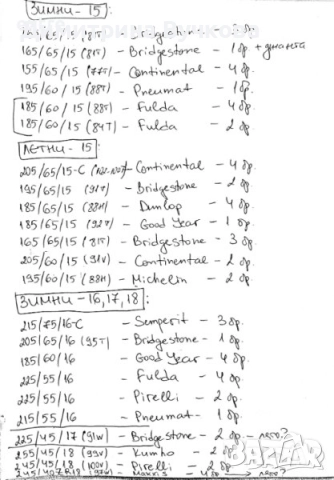 ЗИМНИ - 15 :
165/65/15 (81T) - Bridgestone - 1 бр. + джанта
155/65/15 (77T) - Continental - 4 бр.
195/60/15 (88T) - Pneumat - 1 бр.
185/60/15 (88T) - Fulda - 4 бр.
185/60/15 (84T) - Fulda - 2 бр.
ЛЕТНИ - 15 :
205/65/15-C - Continental - 4 бр.
195/65/15 (91V) - Bridgestone - 2 бр.
185/65/15 (88H) - Dunlop - 4 бр.
185/65/15 (92V) - Good Year - 1 бр.
165/65/15 (81T) - Bridgestone - 3 бр.
205/60/15 (91V) - Continental - 2 бр.
195/60/15 (88H) - Michelin - 2 бр.
ЗИМНИ - 16, 17, 18 :
215/75/16-C - Semperit - 3 бр.
205/65/16 (95T) - Bridgestone - 1 бр.
185/60/16 - Good Year - 4 бр.
225/55/16 - Fulda - 4 бр.
225/55/16 - Pirelli - 2 бр.
215/55/16 - Pneumat - 1 бр.
225/45/17 (91W) - Bridgestone - 2 бр. - лято?
255/45/18 (99V) - Kumho - 2 бр.
245/45/18 (100V) - Pirelli - 2 бр.